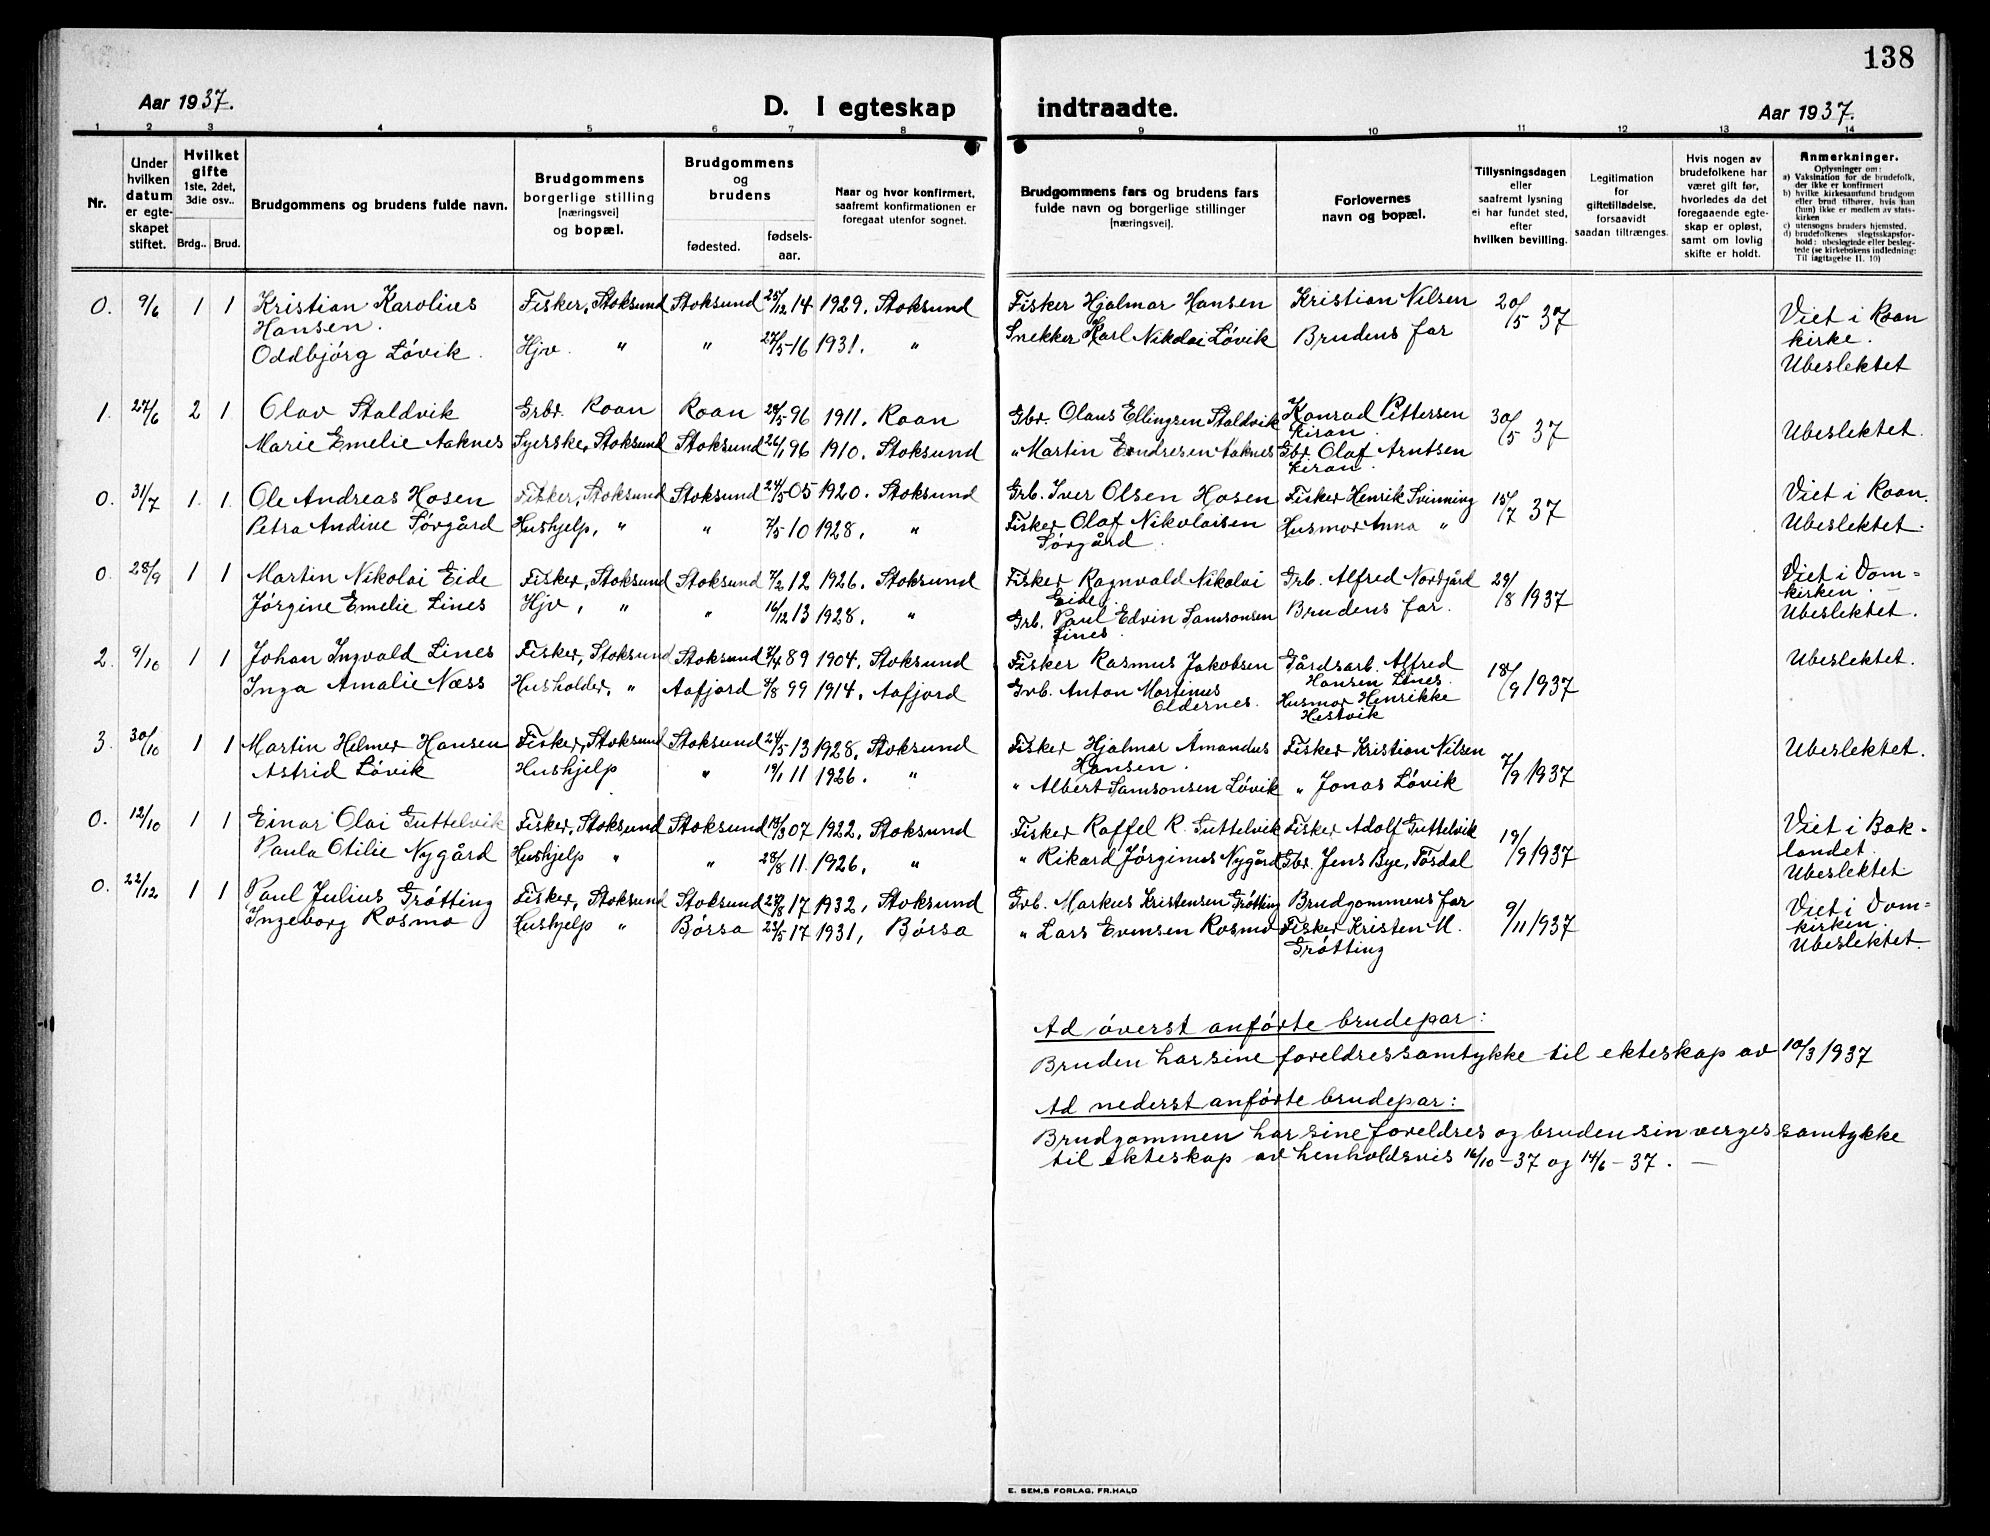 138
Aar 1937.
D. I egteskap indtraadte.
Aar 1937.
1 2 3 4 5 6 7 8 9 10 11 12 13 14
Nr.
Under hvilken datum er egteskapet stiftet.
Hvilket gifte 1ste, 2det, 3die osv..
Brdg.. Brud.
Brudgommens og brudens fulde navn.
Brudgommens borgerlige stilling [næringsvei] og bopæl.
Brudgommens og brudens
fødested.
fødsels-aar.
Naar og hvor konfirmert, saafremt konfirmationen er foregaat utenfor sognet.
Brudgommens fars og brudens fars fulde navn og borgerlige stillinger [næringsvei].
Forlovernes navn og bopæl.
Tillysningsdagen eller saafremt lysning ei har fundet sted, efter hvilken bevilling.
Legitimation for giftetilladelse, forsaavidt saadan tiltrænges.
Hvis nogen av brudefolkene har været gift før, hvorledes da det foregaaende egteskap er opløst, samt om lovlig skifte er holdt.
Anmerkninger.
Oplysninger om:
a) Vaksination for de brudefolk, der ikke er konfirmert
b) hvilke kirkesamfund brudgom eller brud tilhører, hvis han (hun) ikke er medlem av statskirken
c) utensogns bruders hjemsted,
d) brudefolkenes slegtsskapsforhold: ubeslegtede eller beslegtede (se kirkebokens indledning: Til iagttagelse II. 10)
0. 9/6 1 1 Kristian Karolius Hansen. Fisker, Stoksund Stoksund 25/12 14 1929. Stoksund Fisker Hjalmar Hansen Kristian Nilsen 20/5 37 Viet i Roan kirke.
Oddbjórg Lóvik. Hjv. " " 27/5-16 1931. " Snekker Karl Nikolai Lóvik Brudens far Ubeslektet
1. 27/6 2 1 Olav Staldvik Grbr. Roan Roan 28/5 96 1911. Roan Gbr. Olaus Ellingsen Staldvik Konrad Pettersen Kiran. 30/5 37 Ubeslektet.
Marie Emelie Aaknes Syerske, Stoksund Stoksund 26/1 96 1910. Stoksund " Martin Endresen Aaknes Gbr. Olaf Arntsen Kiran.
0. 31/7 1. 1. Ole Andreas Hosen Fisker, Stoksund Stoksund 24/5 05 1920. Stoksund Grb. Iver Olsen Hosen Fisker Henrik Svinning 15/7 37 Viet i Roan.
Petra Andine Sórgård Hushjelp, " " 7/5 10 1928. " Fisker Olaf Nikolaisen Sórgård. Husmor Anna " Ubeslektet.
0. 28/9 1 1 Martin Nikolai Eide Fisker, Stoksund Stoksund 7/2 12 1926. Stoksund Fisker Ragnvald Nikolai Eide. Grb. Alfred Nordgård 29/8 1937 Viet i Domkirken.
Jórgine Emelie Lines Hjv, " " 16/12 13 1928. " Grb. Paul Edvin Samsonsen Lines. Brudens far. Ubeslektet.
2. 9/10 1 1 Johan Ingvald Lines Fisker, Stoksund Stoksund 89 1904. Stoksund Fisker Rasmus Jakobsen Gårdsarb. Alfred Hansen Lines. 18/9 1937 Ubeslektet.
Inga Amalie Næss Husholder, " Aafjord 99 1914. Aafjord Grb. Anton Martinus Oldernes. Husmor Henrikke Hestvik
3. 30/10 1 1 Martin Helmer Hansen Fisker, Stoksund Stoksund 24/5 13 1928. Stoksund Fisker Hjalmar Amandus Hansen. Fisker Kristian Nilsen 7/9 1937 Ubeslektet.
Astrid Lóvik Hushjelp " 19/1 11 1926. " " Albert Samsonsen Lóvik " Jonas Lóvik
0. 12/10 1 1 Einar Olai Guttelvik Fisker, Stoksund Stoksund 13/3 07 1922. Stoksund Fisker Raffel R. Guttelvik Fisker Adolf Guttelvik 19/9 1937 Viet i Baklandet.
Paula Otilie Nygård Hushjelp " " 28/8 11. 1926. " " Rikard Jórginus Nygård Gbr. Jens Bye, Tósdal Ubeslektet
0. 22/12 1 1 Paul Julius Grótting Fisker, Stoksund Stoksund 27/8 17 1932, Stoksund Grb. Markus Kristensen Grótting Brudgommens far 9/11 1937 Viet i Domkirken.
Ingeborg Rosmo Hushjelp " Bórsa 23/5 17 1931, Bórsa " Lars Evensen Rosmo Fisker Kristen M. Grótting Ubeslektet.
Ad óverst anfórte brudepar:
Bruden har sine foreldres samtykke til ekteskap av 10/3 1937
Ad nederst anfórte brudepar:
Brudgommen har sine foreldres og bruden sin verges samtykke
til ekteskap av henholdsvis 16/10-37 og 14/6-37. —
E. SEM,S FORLAG, FR.HALD